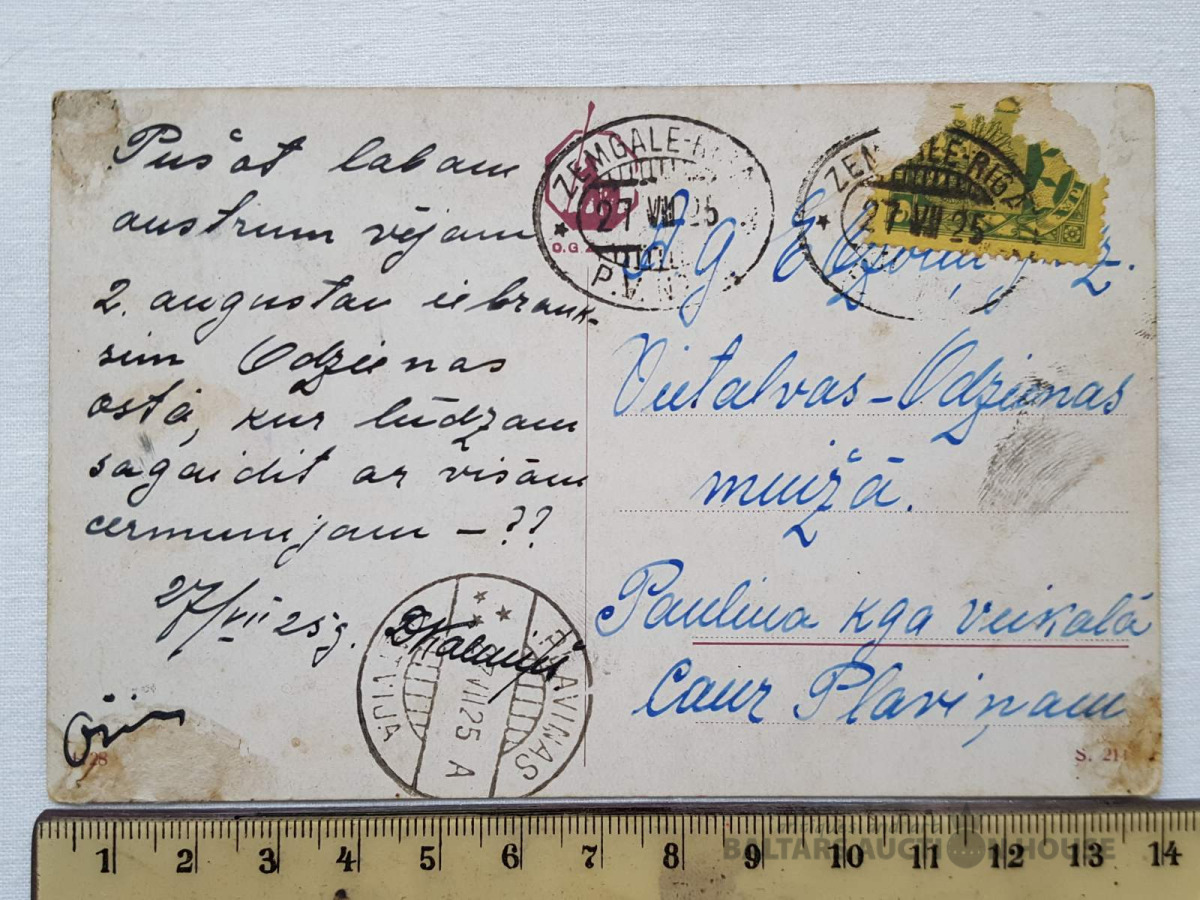 Pušot labam
austrum vējam
2. augustav iebrauk-
sim Odzienas
ostā, kur lūdzam
sagaidit ar visām
cermunijam – ??
27/VII 25g.
O.G.
ZEMGALE-RIGA
27 VII 25
P.V.
ZEMGALE-RIGA
27 VII 25
A g
Vietalvas – Odzienas
muižā.
Paulina kga veikalā
Caur Plaviņam
PLAVINAS
VII 25 A
LATVIJA
28
S. 21
1 2 3 4 5 6 7 8 9 10 11 12 13 14
BALTAR AUCTION HOUSE